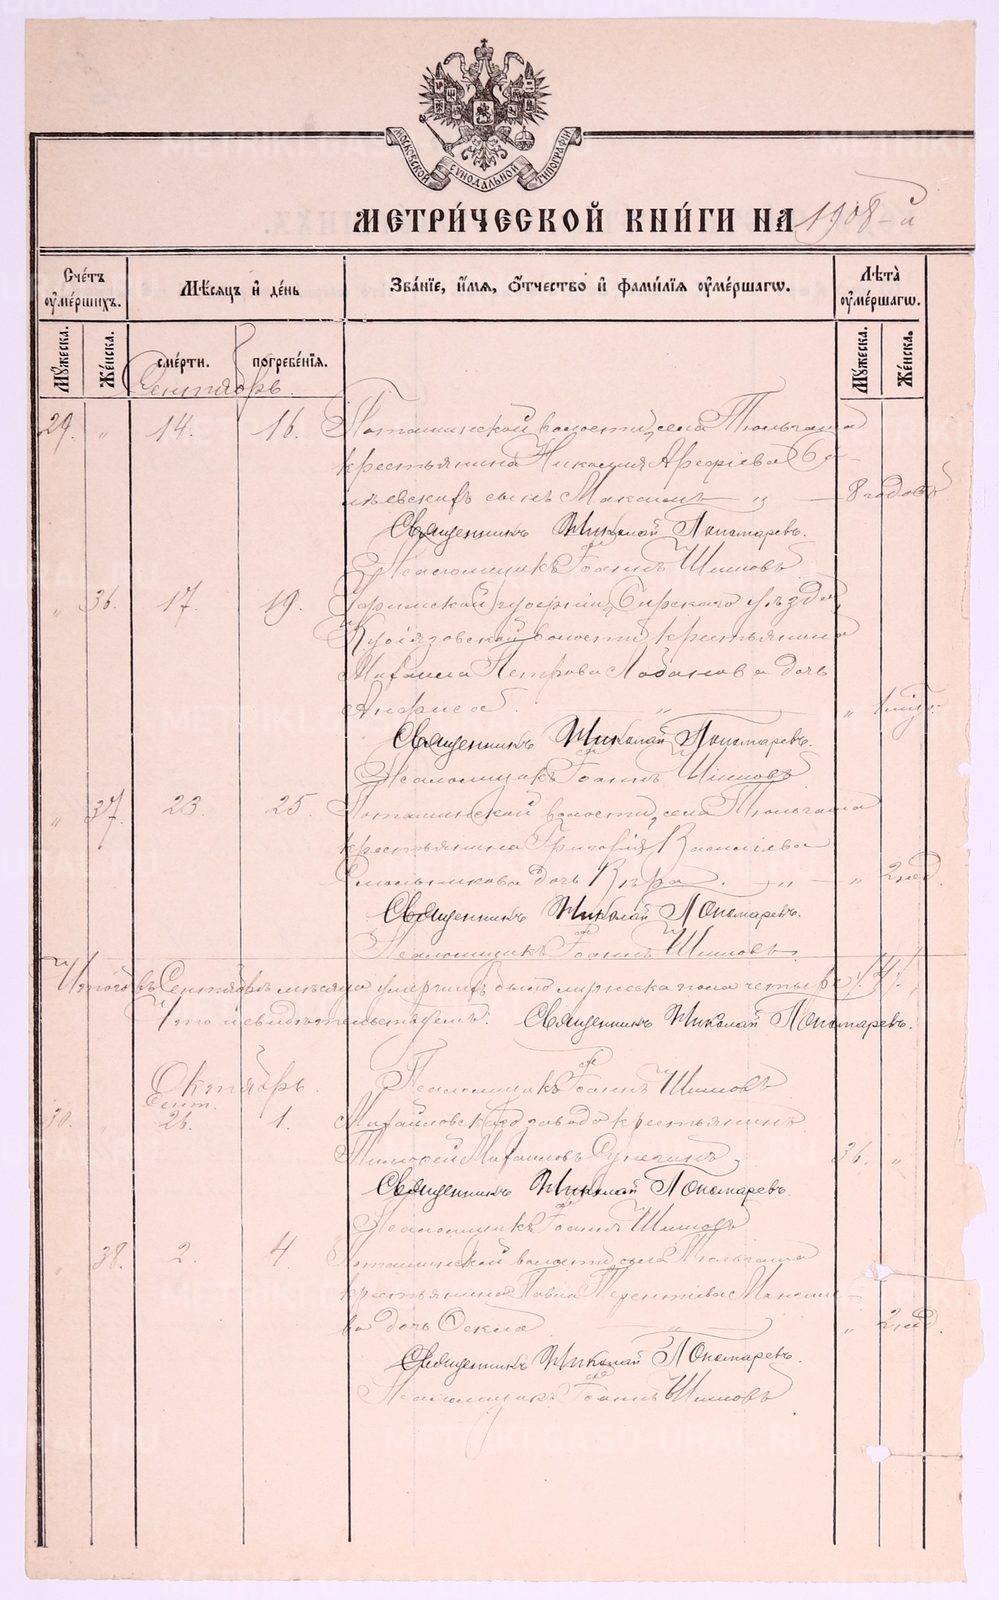 МОСКОВСКОЙ СУНОДАЛЬНОЙ ТИПОГРАФІИ
МЕТРИ́ЧЕСКОЙ КНИ́ГИ НА 1908-й
Сче́тъ оу҆ме́ршихъ.
Мѣ́сяцъ и҆ де́нь
Зва́нїе, и҆́мя, ѻ҆́тчество и҆ фами́лїя оу҆ме́ршагѡ.
Лѣ́та оу҆ме́ршагѡ.
Мꙋ́жеска.
Же́нска.
сме́рти.
погребе́нїя.
Мꙋ́жеска.
Же́нска.
Сентябрь.
29. " 14. 16. Поташинской волости, села Тюльгаша
крестьянина Николая Арефіева
сынъ Максимъ " — 8 годовъ
Священникъ Николай Пономаревъ.
Псаломщикъ Іоаннъ Шишовъ
" 36. 17. 19. Уфимской губерніи, Бирскаго уѣзда,
волости, крестьянина
Михаила Петрова Лобанова дочь
Анфиса. " — "
Священникъ Николай Пономаревъ.
Псаломщикъ Іоаннъ Шишовъ
" 37. 23. 25. Поташинской волости, села Тюльгаша
крестьянина Григорія Василіева
дочь Вѣра. — " — " 2 нед.
Священникъ Николай Пономаревъ.
Псаломщикъ Іоаннъ Шишовъ.
Итого въ Сентябрѣ мѣсяцѣ умершихъ было мужеска пола четыре /4/,
что и свидѣтельствуемъ: Священникъ Николай Пономаревъ.
Октябрь.
Псаломщикъ Іоаннъ Шишовъ
Сент.
30. 26. 1. Михайловскаго завода крестьянинъ
Тимофей Михаиловъ 36. "
Священникъ Николай Пономаревъ.
Псаломщикъ Іоаннъ Шишовъ
38. 2. 4. Поташинской волости, села Тюльгаша
крестьянина Павла Терентіева
дочь — " 2 нед.
Священникъ Николай Пономаревъ.
Псаломщикъ Іоаннъ Шишовъ
METRIKI.GASO-URAL.RU